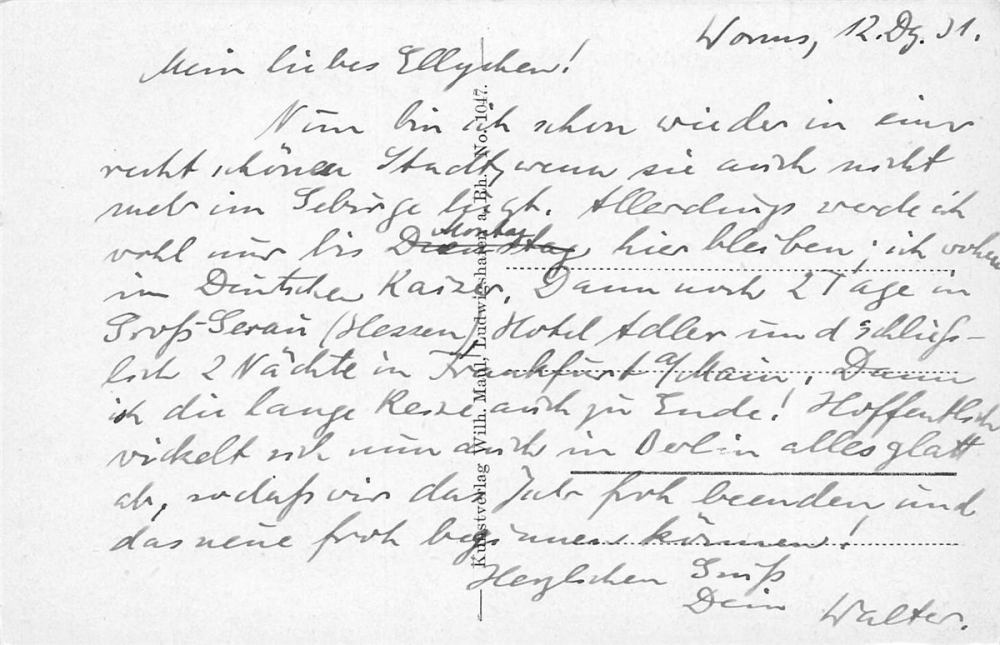 Worms, 12. Dz. 31.
Mein liebes Ellychen!
Nun bin ich schon wieder in einer
recht schönen Stadt, wenn sie auch nicht
mehr im Gebirge liegt. Allerdings werde ich
wohl nur bis Dienstag Montag hier bleiben; ich wohne
im Deutschen Kaiser. Dann noch 2 Tage in
Groß-Gerau (Hessen) Hotel Adler und schließ-
lich 2 Nächte in Frankfurt a/Main. Dann
ist die lange Reise auch zu Ende! Hoffentlich
wickelt sich nun auch in Berlin alles glatt
ab, sodaß wir das Jahr froh beenden und
das neue froh beginnen können!
Herzlichen Gruß
Dein Walter.
Kunstverlag Wilh. Manl, Ludwigshafen a. Rh. No. 1047.